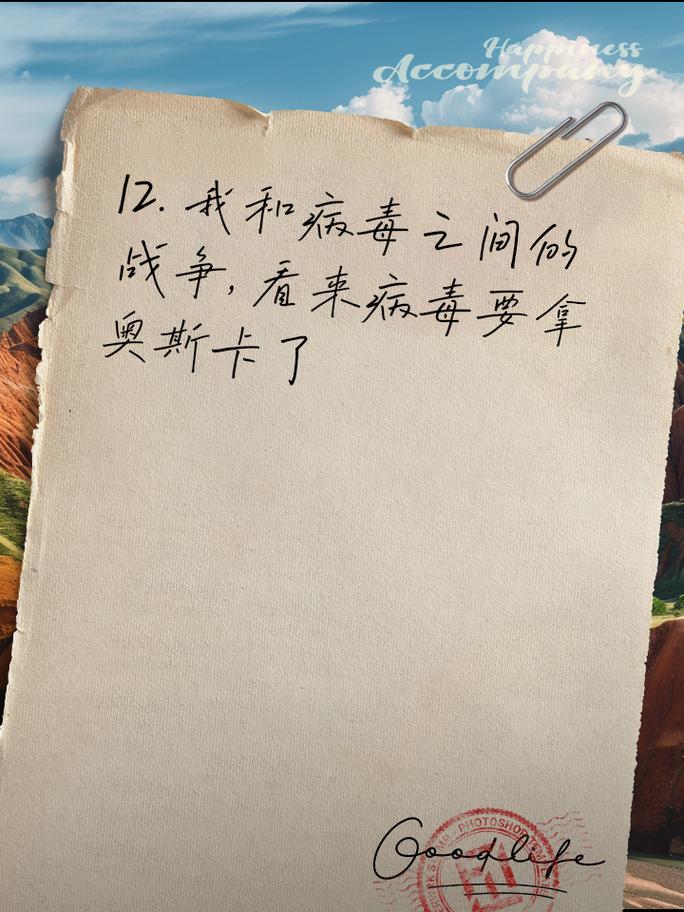 Happiness
Accompany
12. 我和病毒之间的
战争，看来病毒要拿
奥斯卡了
PHOTOSHOP
Goodlife